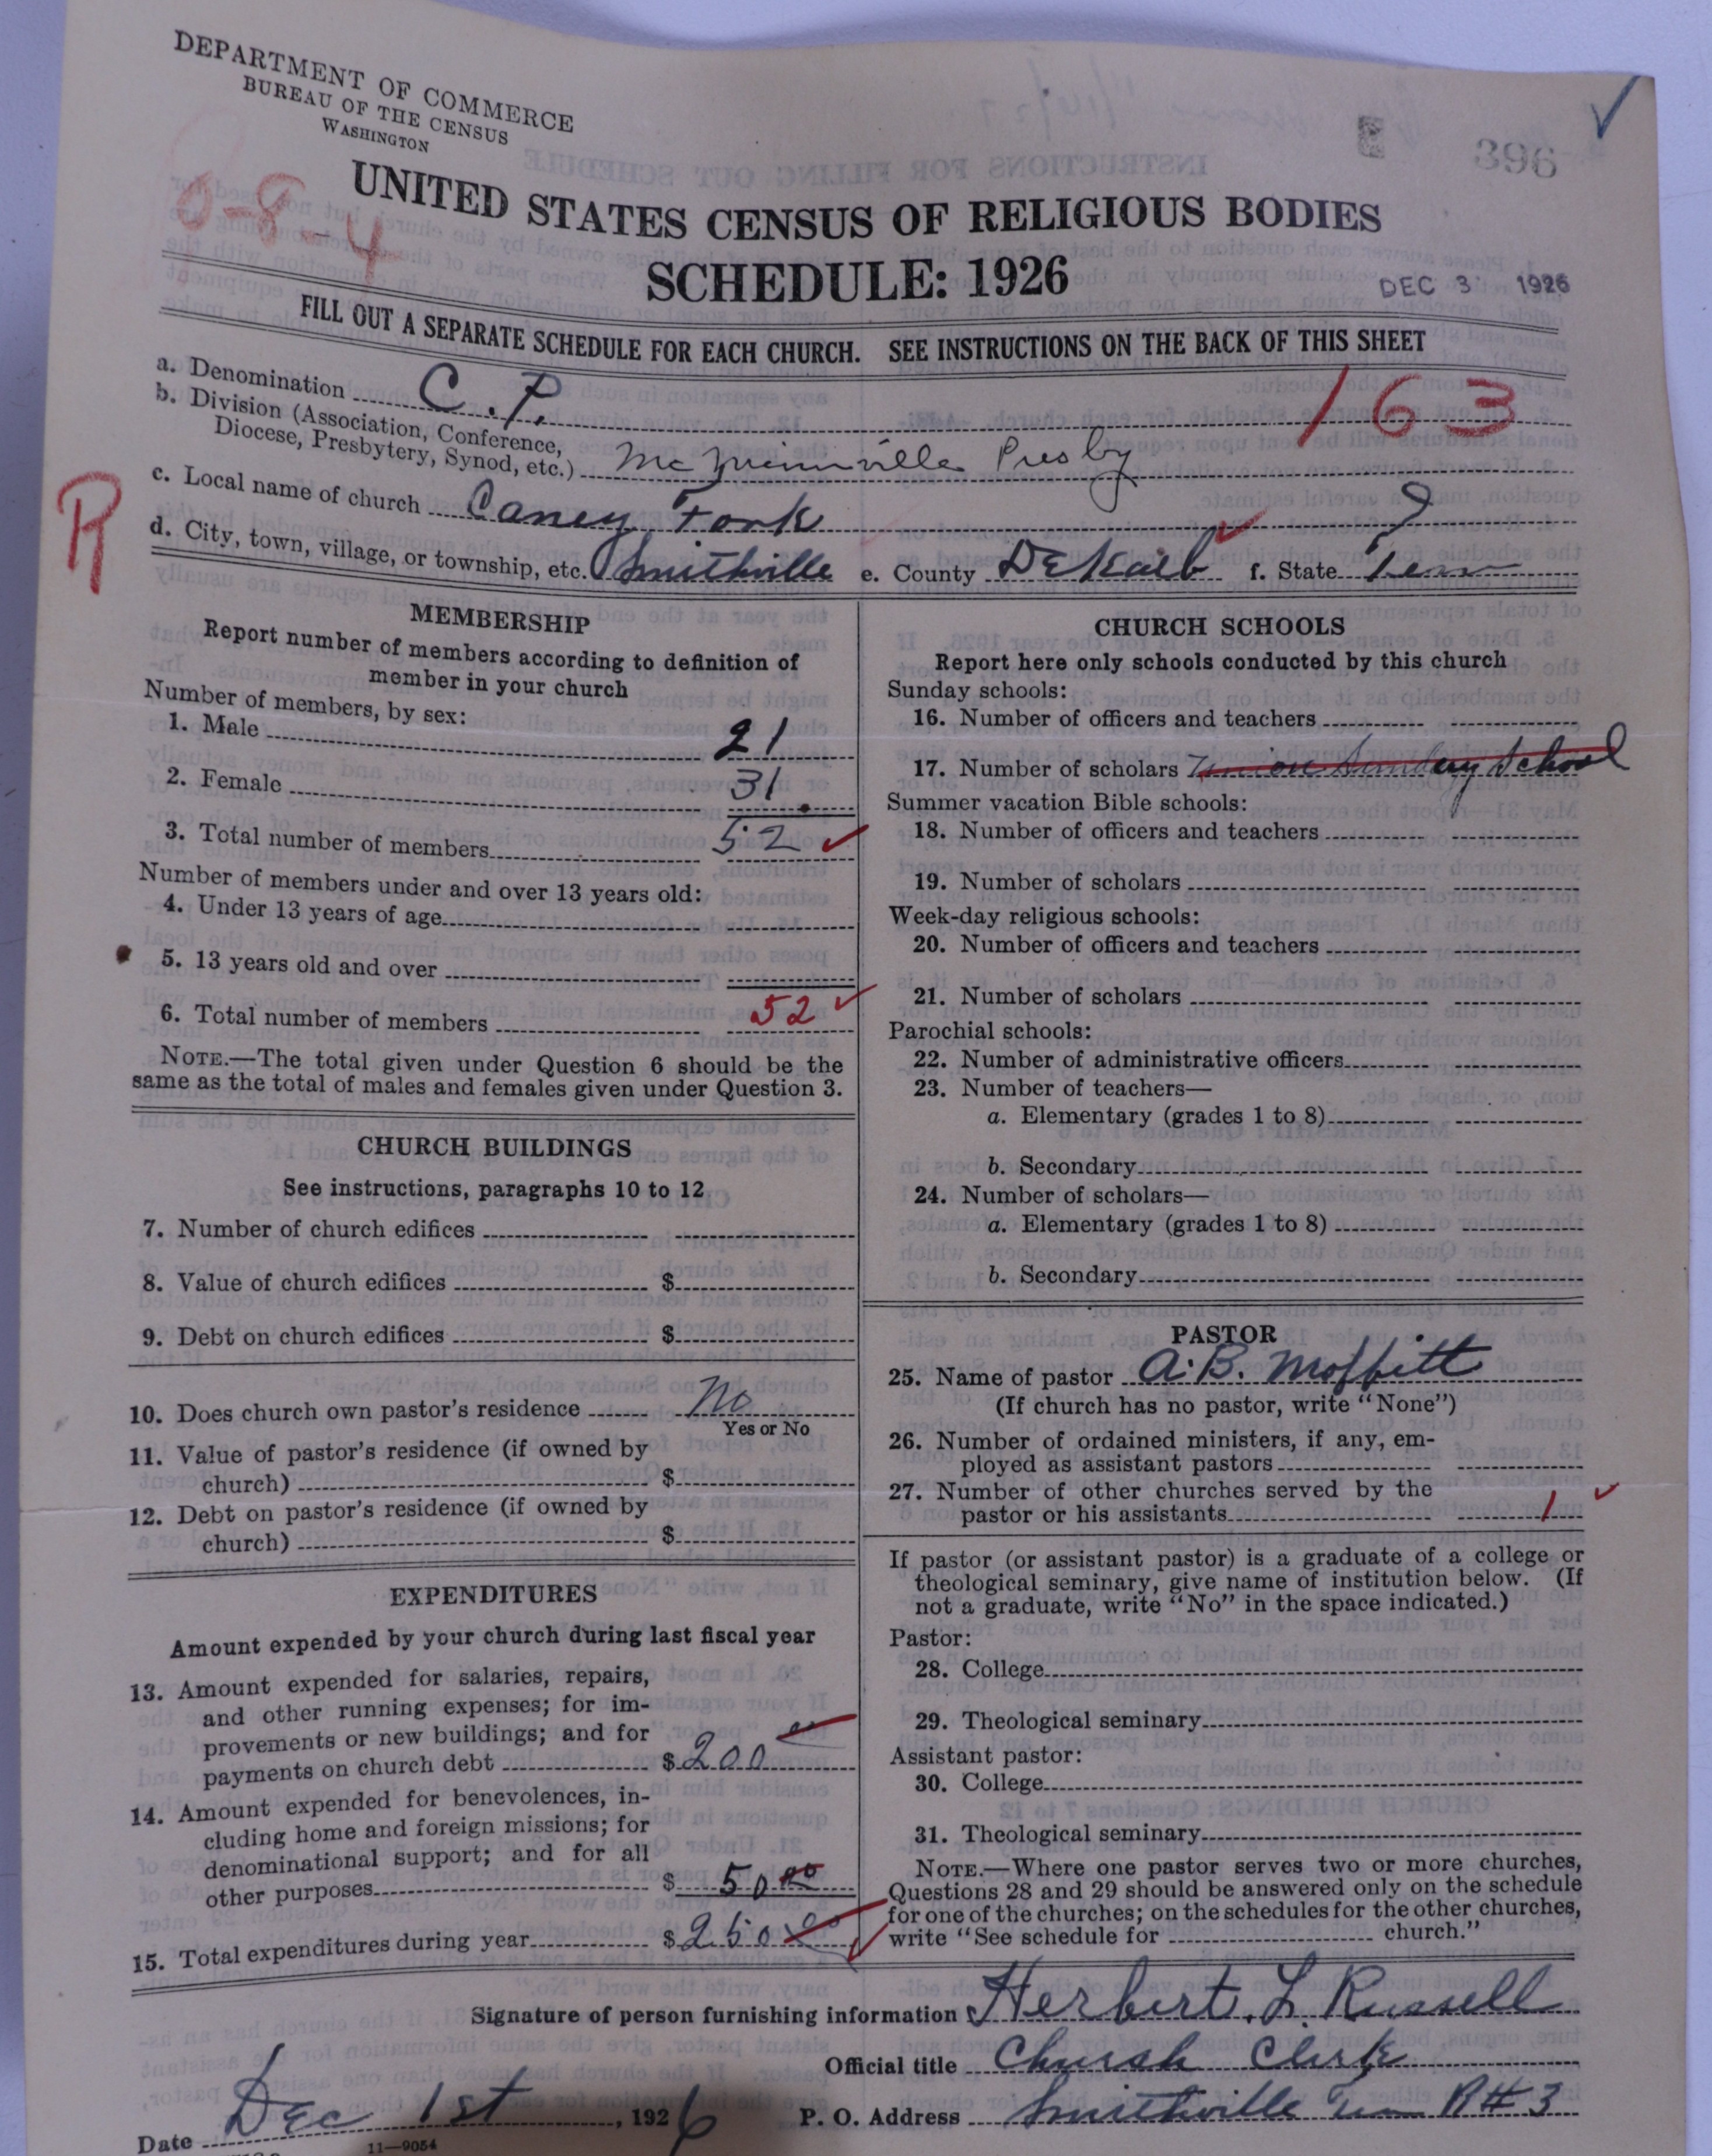 DEPARTMENT OF COMMERCE
BUREAU OF THE CENSUS
WASHINGTON
396
0-8-4
UNITED STATES CENSUS OF RELIGIOUS BODIES
SCHEDULE: 1926
DEC 3 1926
FILL OUT A SEPARATE SCHEDULE FOR EACH CHURCH. SEE INSTRUCTIONS ON THE BACK OF THIS SHEET
a. Denomination C.P.
163
b. Division (Association, Conference,
Diocese, Presbytery, Synod, etc.) McMinnville Presby
R
c. Local name of church Caney Fork
d. City, town, village, or township, etc. Smithville e. County DeKalb f. State Tenn
MEMBERSHIP
Report number of members according to definition of
member in your church
Number of members, by sex:
1. Male 21
2. Female 31
3. Total number of members 52
Number of members under and over 13 years old:
4. Under 13 years of age
5. 13 years old and over
6. Total number of members 52
NOTE.—The total given under Question 6 should be the
same as the total of males and females given under Question 3.
CHURCH BUILDINGS
See instructions, paragraphs 10 to 12
7. Number of church edifices
8. Value of church edifices $
9. Debt on church edifices $
10. Does church own pastor's residence No
Yes or No
11. Value of pastor's residence (if owned by
church) $
12. Debt on pastor's residence (if owned by
church) $
EXPENDITURES
Amount expended by your church during last fiscal year
13. Amount expended for salaries, repairs,
and other running expenses; for im-
provements or new buildings; and for
payments on church debt $ 200 00
14. Amount expended for benevolences, in-
cluding home and foreign missions; for
denominational support; and for all
other purposes $ 50 00
15. Total expenditures during year $ 250 00
CHURCH SCHOOLS
Report here only schools conducted by this church
Sunday schools:
16. Number of officers and teachers
17. Number of scholars Union Sunday School
Summer vacation Bible schools:
18. Number of officers and teachers
19. Number of scholars
Week-day religious schools:
20. Number of officers and teachers
21. Number of scholars
Parochial schools:
22. Number of administrative officers
23. Number of teachers—
a. Elementary (grades 1 to 8)
b. Secondary
24. Number of scholars—
a. Elementary (grades 1 to 8)
b. Secondary
PASTOR
25. Name of pastor A.B. Moffitt
(If church has no pastor, write "None")
26. Number of ordained ministers, if any, em-
ployed as assistant pastors
27. Number of other churches served by the
pastor or his assistants 1
If pastor (or assistant pastor) is a graduate of a college or
theological seminary, give name of institution below. (If
not a graduate, write "No" in the space indicated.)
Pastor:
28. College
29. Theological seminary
Assistant pastor:
30. College
31. Theological seminary
NOTE.—Where one pastor serves two or more churches,
Questions 28 and 29 should be answered only on the schedule
for one of the churches; on the schedules for the other churches,
write "See schedule for church."
Signature of person furnishing information Herbert L. Russell
Official title Church Clerk
Date Dec 1st, 1926 P. O. Address Smithville Tenn R#3
11—9054